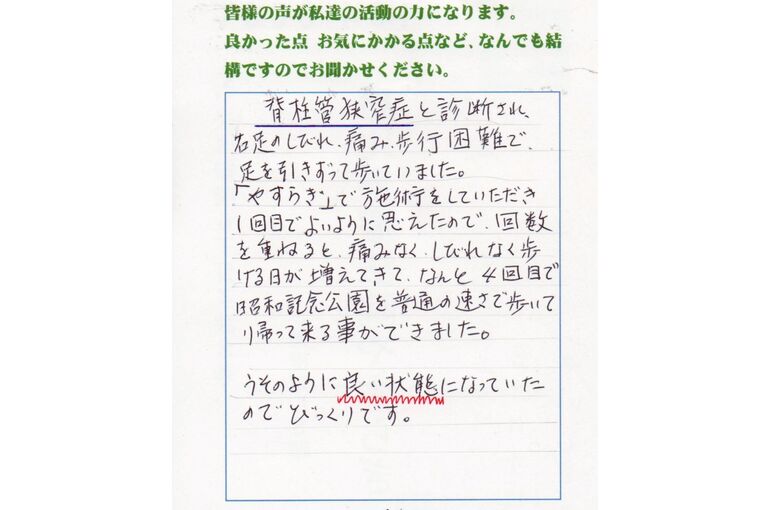 皆様の声が私達の活動の力になります。
良かった点 お気にかかる点など、なんでも結
構ですのでお聞かせください。
脊柱管狭窄症と診断され、
右足のしびれ、痛み、歩行困難で、
足を引きずって歩いていました。
「やすらぎ」で施術をしていただき
1回目でよいように思えたので、回数
を重ねると、痛みなく、しびれなく歩
ける日が増えてきて、なんと4回目で
昭和記念公園を普通の速さで歩いて
帰って来る事ができました。
うそのように良い状態になっていた
のでびっくりです。